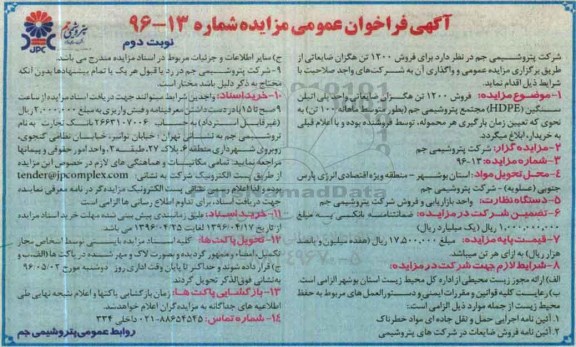 آگهی فراخوان عمومی مزایده شماره ۱۳-۹۶
نوبت دوم
پتروشیمی جم
JPC
شرکت پتروشیمی جم در نظر دارد برای فروش ۱۲۰۰ تن هگزان ضایعاتی از
طریق برگزاری مزایده عمومی و واگذاری آن به شرکت‌های واجد صلاحیت با
شرایط ذیل اقدام نماید.
۱-موضوع مزایده: فروش ۱۲۰۰ تن هگزان ضایعاتی واحد پلی اتیلن
سنگین (HDPE) مجتمع پتروشیمی جم (بطور متوسط ماهانه ۱۰۰ تن) به
نحوی که تعیین زمان بارگیری هر محموله، توسط فروشنده بوده و با اعلام قبلی
به خریدار، ابلاغ میگردد.
۲-مزایده گزار: شرکت پتروشیمی جم
۳-شماره مزایده: ۱۳-۹۶
۴-محل تحویل مواد: استان بوشهر - منطقه ویژه اقتصادی انرژی پارس
جنوبی (عسلویه) - شرکت پتروشیمی جم
۵-دستگاه نظارت: واحد بازاریابی و فروش شرکت پتروشیمی جم
۶-تضمین شرکت در مزایده: ضمانتنامه بانکی به مبلغ
۱,۰۰۰,۰۰۰,۰۰۰ ریال (یک میلیارد ریال)
۷-قیمت پایه مزایده: مبلغ ۱۷,۵۰۰,۰۰۰ ریال (هفده میلیون و پانصد
هزار ریال) به ازای هر تن میباشد.
۸-شرایط لازم جهت شرکت در مزایده:
الف) ارائه مجوز زیست محیطی از اداره کل محیط زیست استان بوشهر الزامی است.
ب) رعایت کلیه قوانین و مقررات ایمنی و دستورالعمل های مربوط به حفظ
محیط زیست از جمله موارد ذیل الزامی است.
۱. آئین نامه اجرایی حمل و نقل جاده ای مواد خطرناک
۲. آئین نامه فروش ضایعات در شرکت های پتروشیمی
ج) سایر اطلاعات و جزئیات مربوط در اسناد مزایده مندرج می باشد.
۹-شرکت پتروشیمی جم در رد یا قبول هر یک یا تمام پیشنهادها بدون آنکه
محتاج به ذکر دلیل باشد مختار است.
۱۰-خرید اسناد: واجدین شرایط میتوانند جهت دریافت اسناد مزایده از ساعت
۹ صبح تا ۱۵ با در دست داشتن معرفینامه و فیش واریزی به مبلغ ۲,۰۰۰,۰۰۰ ریال
(غیر قابل استرداد) به حساب ۲۶۶۳۱۰۷۰۰۶ بانک تجارت به نام
پتروشیمی جم به نشانی: تهران، خیابان نوانیر، خیابان نظامی گنجوی،
روبروی شهرداری منطقه ۶، پلاک ۲۷، طبقه ۲، واحد امور حقوقی و پیمانها
مراجعه نمایند. تمامی مکاتبات و هماهنگی های لازم در خصوص این مزایده
از طریق پست الکترونیک شرکت به نشانی: tender@jpcomplex.com
بوده و لذا اعلام رسمی نشانی پست الکترونیک مزایده گر در نامه معرفی نماینده
جهت دریافت اسناد، برای تداوم اطلاع رسانی ها الزامی است
۱۱-خرید اسناد: طبق زمانبندی پیش بینی شده مهلت خرید اسناد مزایده
از تاریخ ۱۳۹۶/۰۴/۱۷ لغایت ۱۳۹۶/۰۴/۲۵ می باشد.
۱۲-تحویل پاکت ها: کلیه اسناد مزایده بایستی توسط اشخاص مجاز
تکمیل، امضاء و ممهور گردیده و بصورت لاک و مهر شده در پاکت ها (الف، ب و
ج) قرار داده شوند و حداکثر تا پایان وقت اداری روز دوشنبه مورخ ۹۶/۰۵/۰۲
به نشانی فوق‌الذکر تحویل گردند.
۱۳-بازگشایی پاکت ها: زمان بازگشایی پاکتها و اعلام نتیجه نهایی طی
اطلاعیه های جداگانه به مزایده گران اعلام خواهد شد.
۱۴-شماره تماس: ۸۸۶۵۴۵۴۵-۰۲۱ داخلی ۳۳۴
روابط عمومی پتروشیمی جم